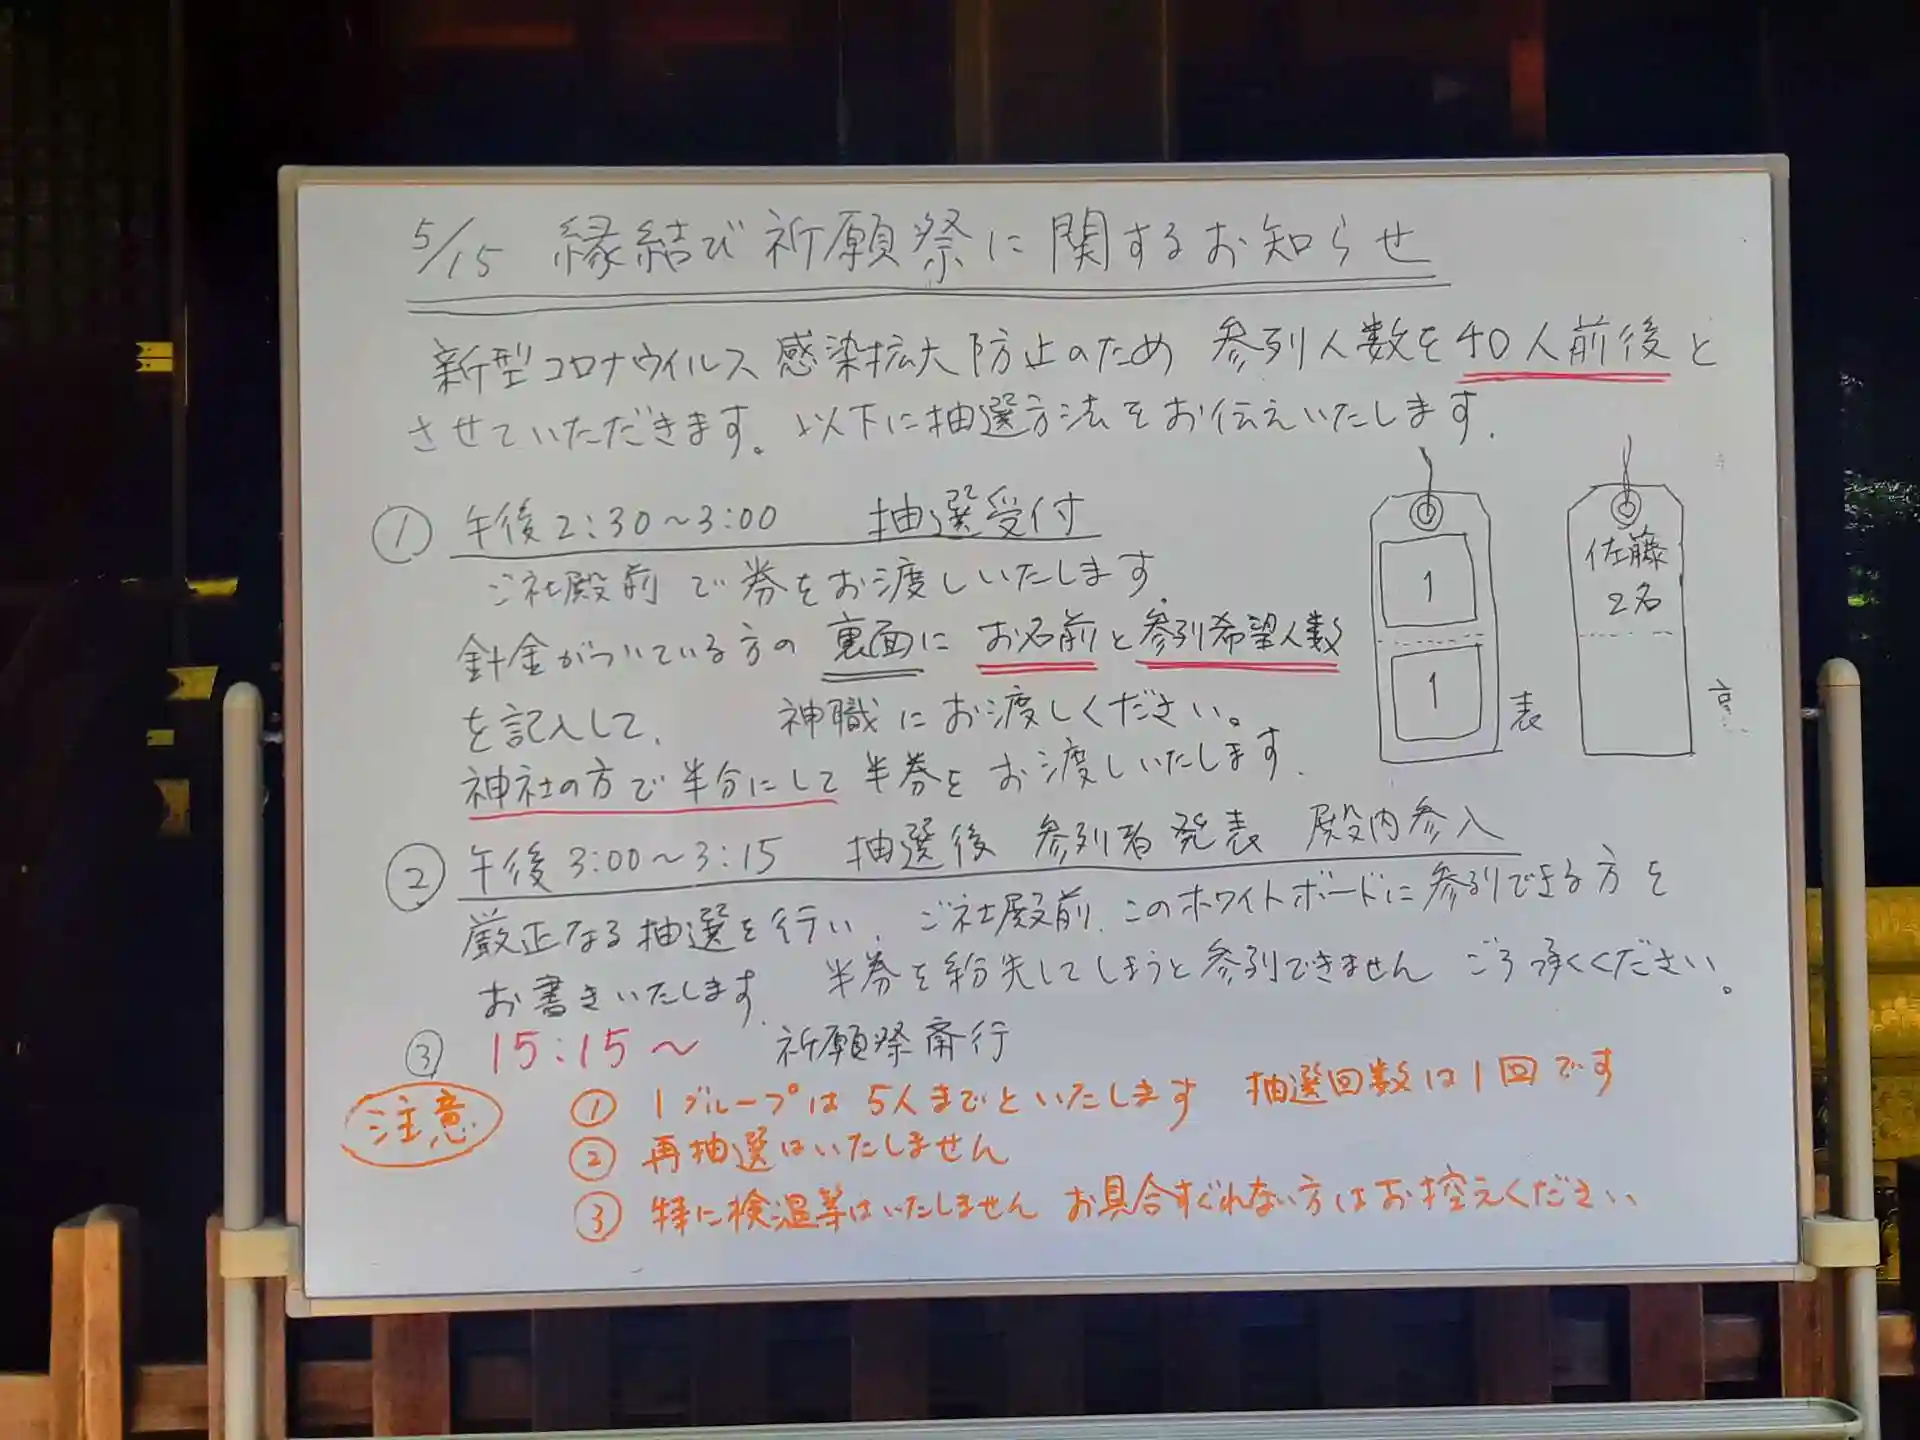 5/15 縁結び祈願祭に関するお知らせ
新型コロナウイルス感染拡大防止のため 参列人数を40人前後と
させていただきます。以下に抽選方法をお伝えいたします.
① 午後2:30～3:00 抽選受付
ご社殿前で券をお渡しいたします.
針金がついている方の裏面にお名前と参列希望人数
を記入して、 神職にお渡しください。
神社の方で半分にして半券をお渡しいたします.
1
1
表
佐藤
2名
② 午後3:00～3:15 抽選後 参列者発表 殿内参入
厳正なる抽選を行い、ご社殿前、このホワイトボードに参列できる方を
お書きいたします. 半券を紛失してしまうと参列できません ご了承ください。
③ 15:15～ 祈願祭斎行
注意
① 1グループは5人までといたします 抽選回数は1回です
② 再抽選はいたしません
③ 特に検温等はいたしません お具合すぐれない方はお控えください